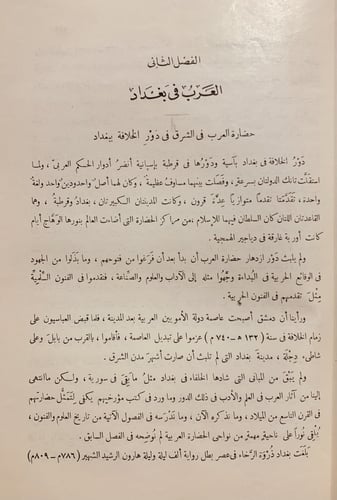 الفصل الثاني
العرب في بغداد
حضارة العرب في الشرق في دور الخلافة ببغداد
دور الخلافة في بغداد بآسية ودورها في قرطبة بإسبانية أنضر أدوار الحكم العربي، ولما
استقلت تانك الدولتان بسرعة، وفصلت بينهما مساوف عظيمة، وكان لهما أصل واحد ودين واحد ولغة
واحدة، تقدمتا تقدما متوازيا عدة قرون، وكانت المدينتان الكبيرتان، بغداد وقرطبة، وهما
القاعدتان اللتان كان السلطان فيهما للإسلام، من مراكز الحضارة التي أضاءت العالم بنورها الوهاج أيام
كانت أوربة غارقة في دياجير الهمجية.
ولم يلبث دور ازدهار حضارة العرب أن بدأ بعد أن فرغوا من فتوحهم، وما بذلوا من الجهود
في الوقائع الحربية في البداءة وجهوا مثله إلى الآداب والعلوم والصناعة، فتقدموا في الفنون السلمية
مثل تقدمهم في الفنون الحربية.
ورأينا أن دمشق أصبحت عاصمة دولة الأمويين العربية بعد المدينة، فلما قبض العباسيون على
زمام الخلافة في سنة (١٣٢ هـ - ٧٤٠ م) عزموا على تبديل العاصمة، فأقاموا، بالقرب من بابل وعلى
شاطئ دجلة، مدينة بغداد التي لم تلبث أن صارت أشهر مدن الشرق.
ولم يبق من المباني التي شادها الخلفاء في بغداد مثل ما بقي في سورية، ولكن ما انتهى
إلينا من آثار العرب في العلم والأدب في ذلك الدور وما ورد في كتب مؤرخيهم يكفي لتمثل حضارتهم
في القرن التاسع من الميلاد، وما نذكره الآن، وما ندرسه في الفصول الآتية من تاريخ العلوم والفنون،
يلقي نورا على ناحية مهمة من نواحي الحضارة العربية لم نوضحه في الفصل السابق.
بلغت بغداد ذروة الرخاء في عصر بطل رواية ألف ليلة وليلة هارون الرشيد الشهير (٧٨٦ م - ٨٠٩ م)